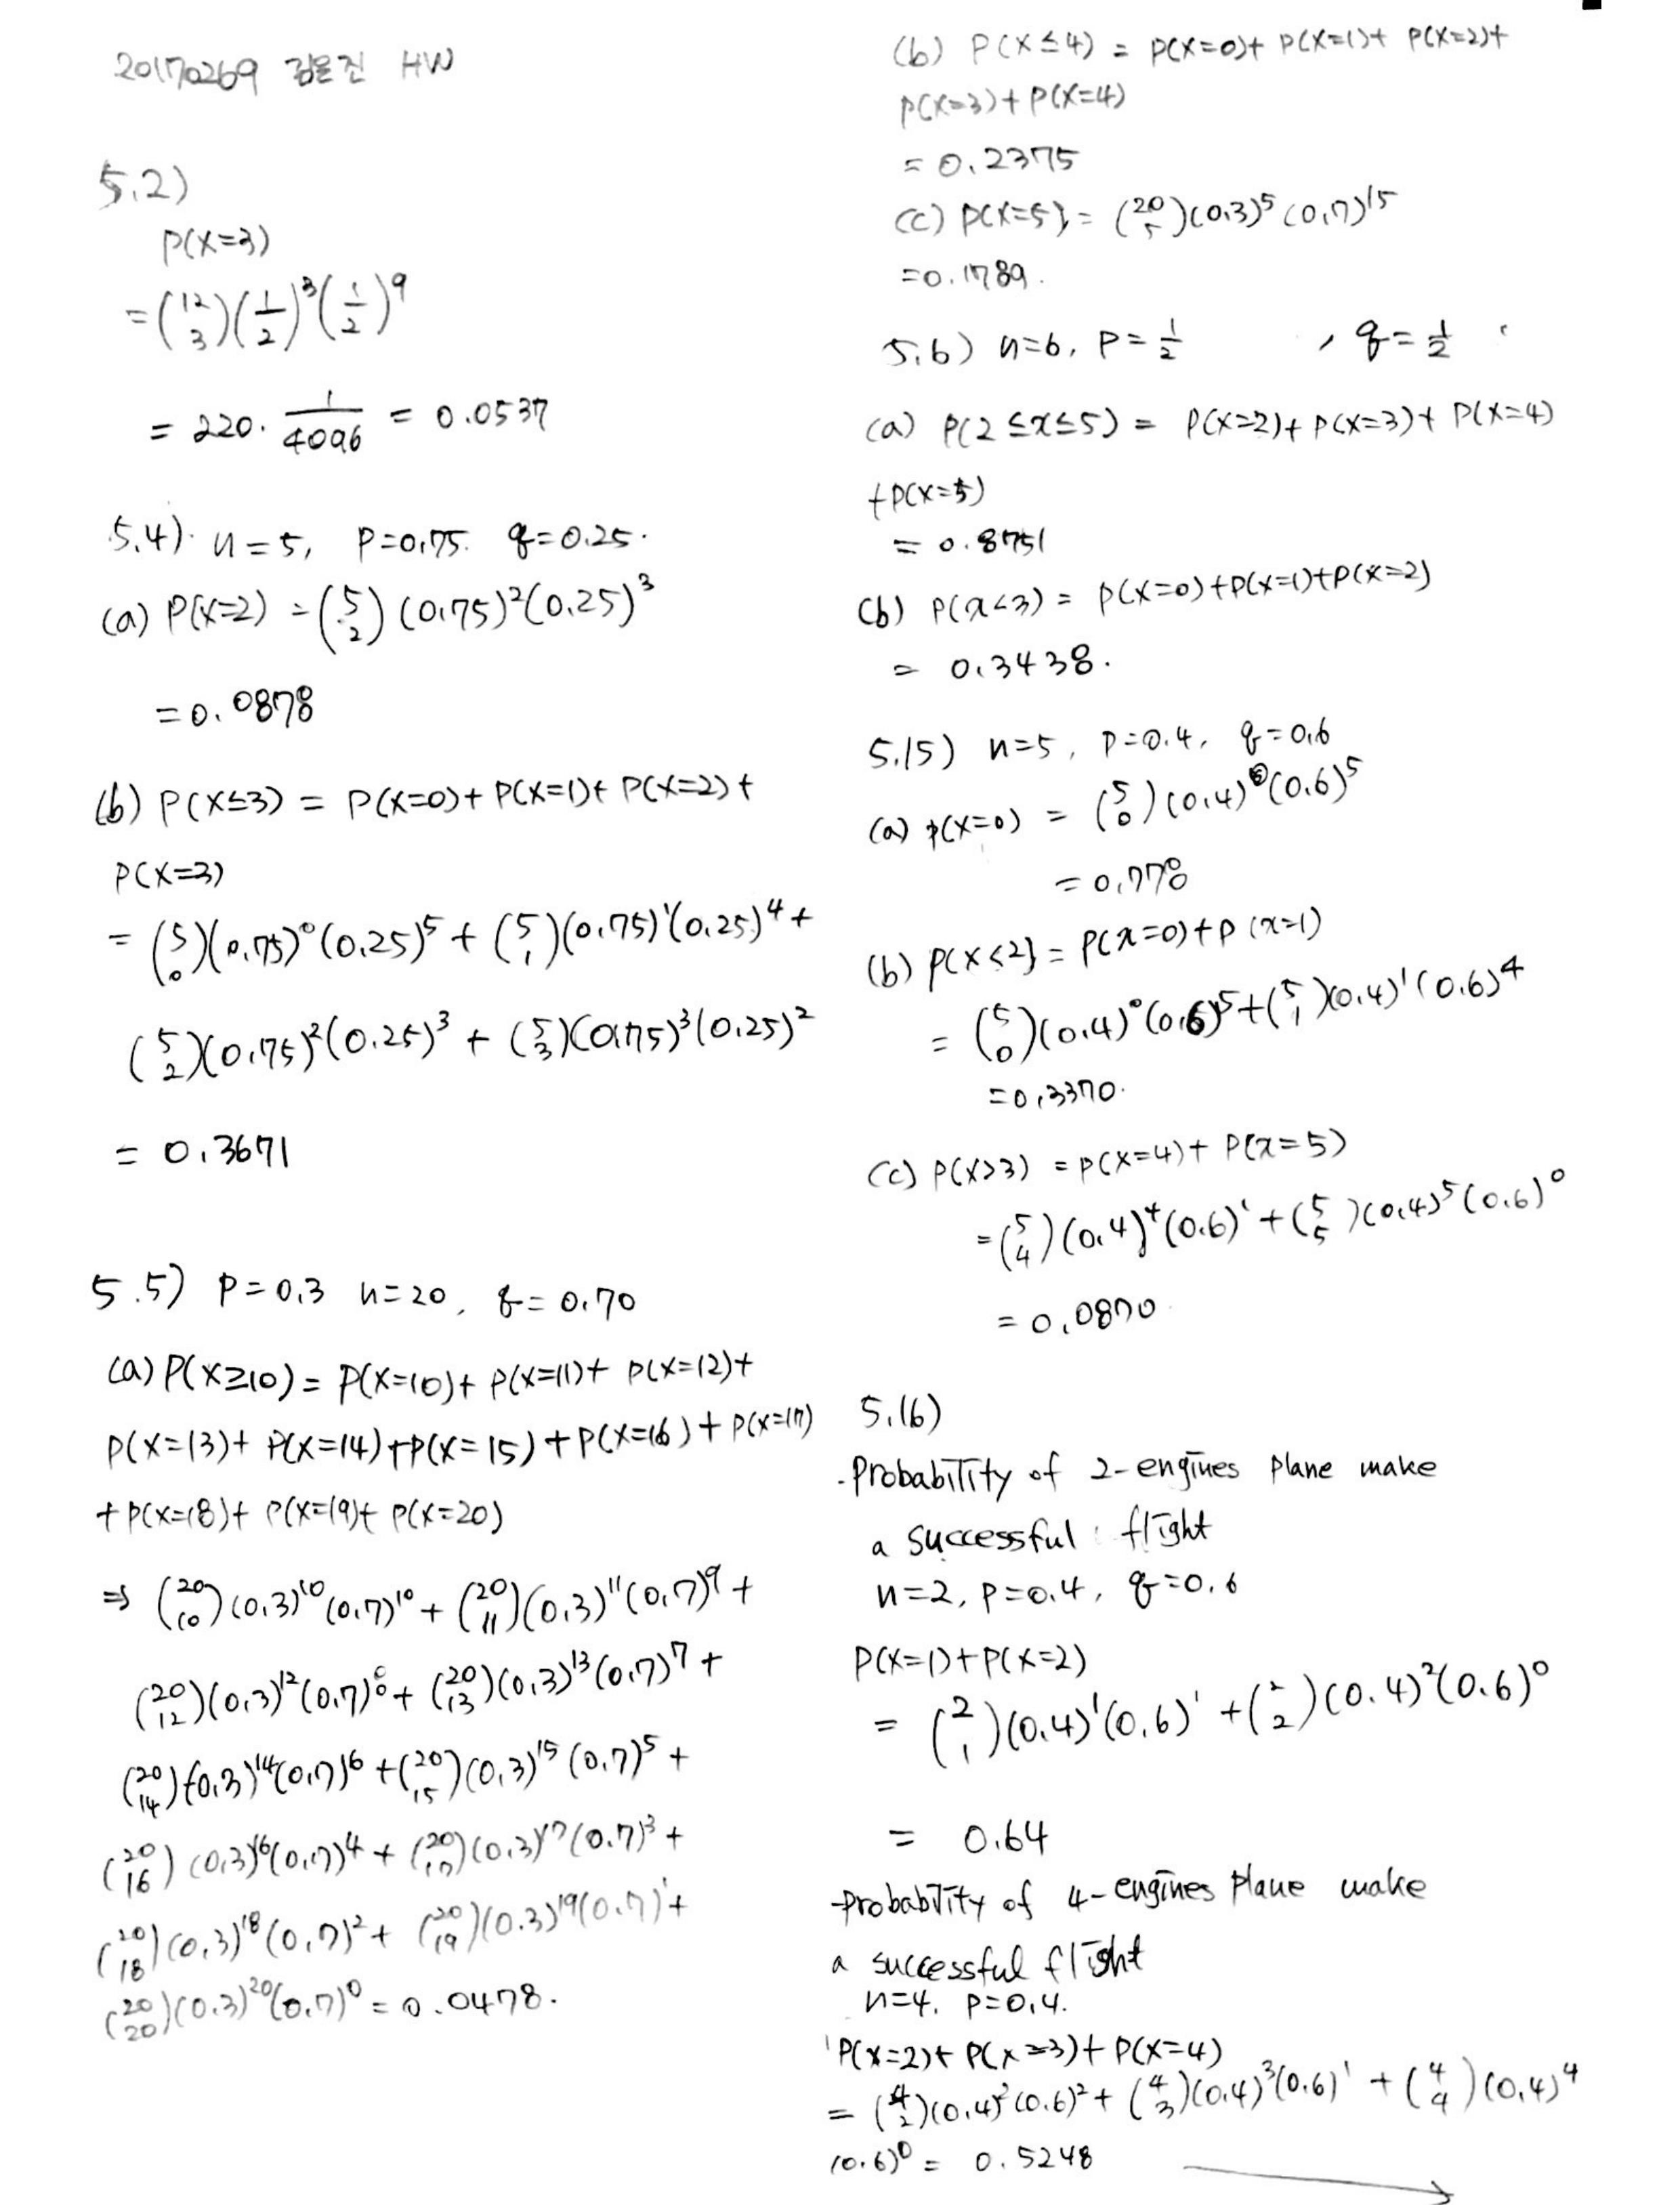 20170269 김은진 HW
5.2)
P(X=3)
= (12 3)(1/2)^3(1/2)^9
= 220 · 1/4096 = 0.0537
5.4). n=5, P=0.75. q=0.25.
(a) P(X=2) = (5 2)(0.75)^2(0.25)^3
= 0.0878
(b) P(X≤3) = P(X=0)+P(X=1)+P(X=2)+
P(X=3)
= (5 0)(0.75)^0(0.25)^5 + (5 1)(0.75)^1(0.25)^4 +
(5 2)(0.75)^2(0.25)^3 + (5 3)(0.75)^3(0.25)^2
= 0.3671
5.5) P=0.3 n=20, q=0.70
(a) P(X≥10) = P(X=10)+P(X=11)+P(X=12)+
P(X=13)+P(X=14)+P(X=15)+P(X=16)+P(X=17)
+P(X=18)+P(X=19)+P(X=20)
⇒ (20 10)(0.3)^10(0.7)^10 + (20 11)(0.3)^11(0.7)^9 +
(20 12)(0.3)^12(0.7)^8 + (20 13)(0.3)^13(0.7)^7 +
(20 14)(0.3)^14(0.7)^6 + (20 15)(0.3)^15(0.7)^5 +
(20 16)(0.3)^16(0.7)^4 + (20 17)(0.3)^17(0.7)^3 +
(20 18)(0.3)^18(0.7)^2 + (20 19)(0.3)^19(0.7)^1 +
(20 20)(0.3)^20(0.7)^0 = 0.0478.
(b) P(X≤4) = P(X=0)+P(X=1)+P(X=2)+
P(X=3)+P(X=4)
= 0.2375
(c) P(X=5} = (20 5)(0.3)^5(0.7)^15
= 0.1789.
5.6) n=6, P=1/2 , q=1/2
(a) P(2≤x≤5) = P(X=2)+P(X=3)+P(X=4)
+P(X=5)
= 0.8751
(b) P(x<3) = P(X=0)+P(X=1)+P(X=2)
= 0.3438.
5.15) n=5, P=0.4, q=0.6
(a) P(X=0) = (5 0)(0.4)^0(0.6)^5
= 0.778
(b) P(X<2} = P(x=0)+P(x=1)
= (5 0)(0.4)^0(0.6)^5+(5 1)(0.4)^1(0.6)^4
= 0.3370.
(c) P(X>3) = P(X=4)+P(x=5)
= (5 4)(0.4)^4(0.6)^1+(5 5)(0.4)^5(0.6)^0
= 0.0870.
5.16)
-Probability of 2-engines plane make
a successful flight
n=2, P=0.4, q=0.6
P(X=1)+P(X=2)
= (2 1)(0.4)^1(0.6)^1 + (2 2)(0.4)^2(0.6)^0
= 0.64
-Probability of 4-engines plane make
a successful flight
n=4, P=0.4.
P(X=2)+P(X=3)+P(X=4)
= (4 2)(0.4)^2(0.6)^2 + (4 3)(0.4)^3(0.6)^1 + (4 4)(0.4)^4
(0.6)^0 = 0.5248 →